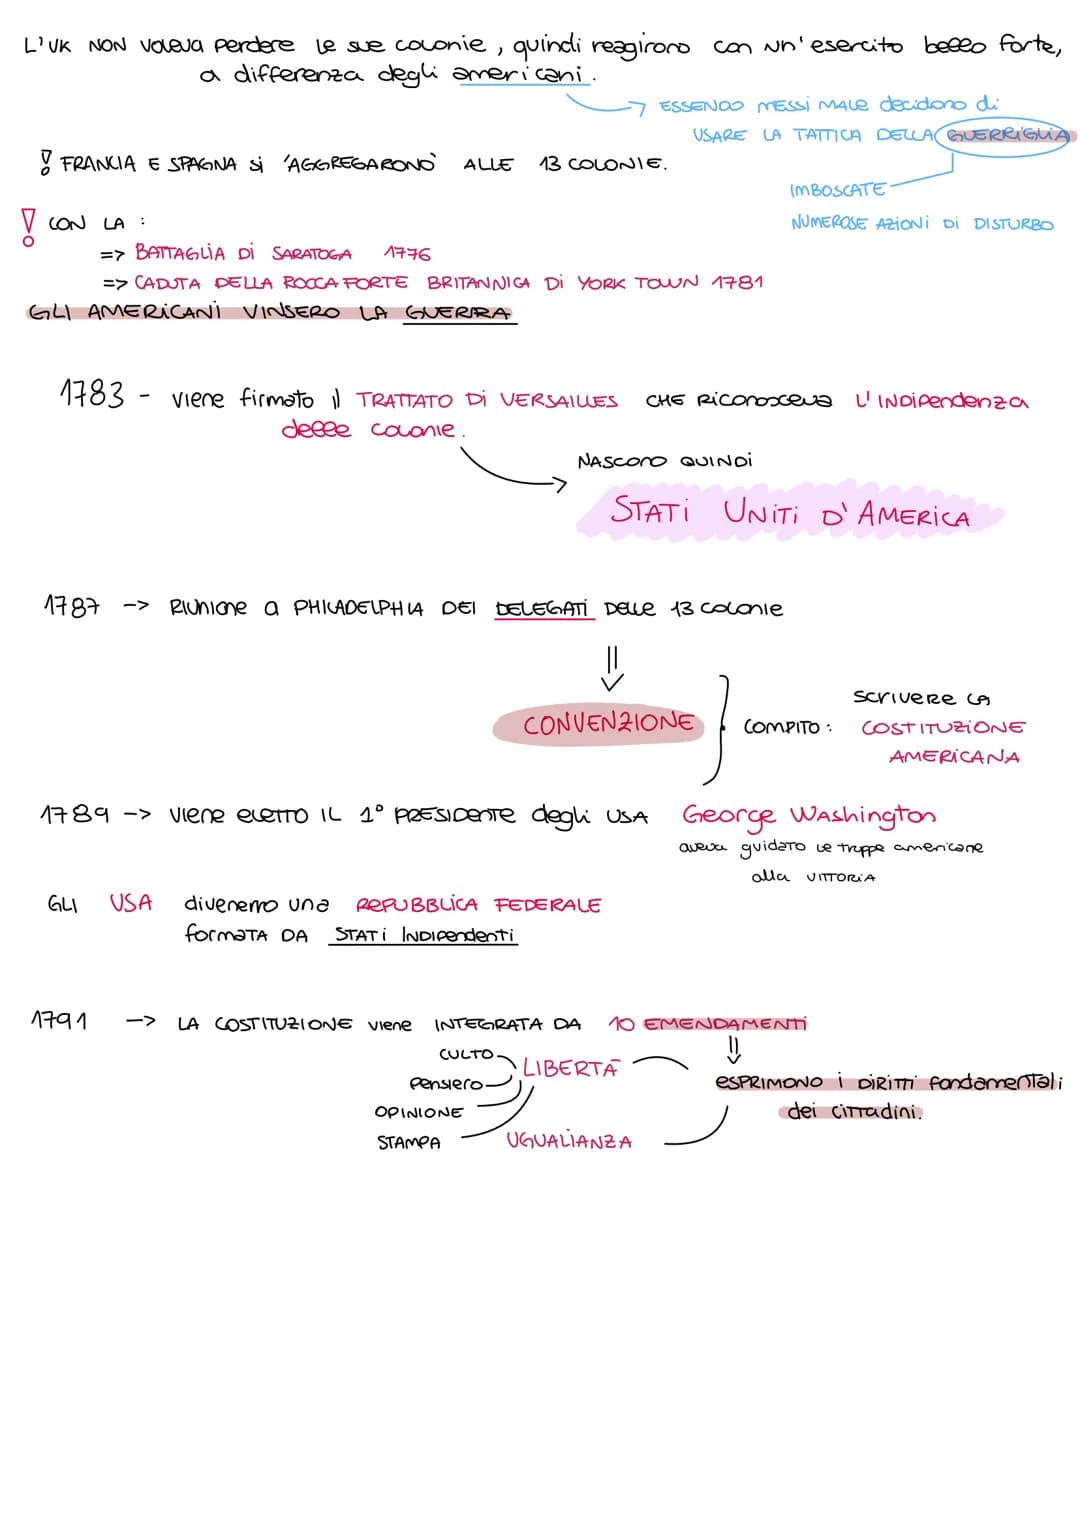 L'UK NON voleva perdere le sue colonie, quindi reagirono con un'esercito bello forte,
a differenza degli americani.
ESSENDO MESSI MALE decidono di
USARE LA TATTICA DELLA GUERRIGLIA
! FRANCIA E SPAGNA Si 'AGGREGARONO' ALLE 13 COLONIE.
IMBOSCATE
NUMEROSE AZIONI DI DISTURBO
! CON LA :
=> BATTAGLIA DI SARATOGA 1776
=> CADUTA DELLA ROCCA FORTE BRITANNICA DI YORK TOWN 1781
GLI AMERICANI VINSERO LA GUERRA
1783 - viene firmato il TRATTATO DI VERSAILLES CHE RICONOSCEVA L'INDIPENDENZA
delle colonie.
NASCONO QUINDI
STATI UNITI D'AMERICA
1787 -> RIUNIONE a PHILADELPHIA DEI DELEGATI DELLE 13 colonie
scrivere la
CONVENZIONE COMPITO : COSTITUZIONE
AMERICANA
1789 -> viene eletto IL 1° PRESIDENTE degli USA George Washington
aveva guidato le truppe americane
alla VITTORIA
GLI USA divenerro una REPUBBLICA FEDERALE
formata DA STATI INDIPENDENTI
1791 -> LA COSTITUZIONE viene INTEGRATA DA 10 EMENDAMENTI
CULTO
LIBERTÀ
Pensiero
ESPRIMONO i DIRITTI fondamentali
OPINIONE
dei cittadini.
STAMPA
UGUALIANZA